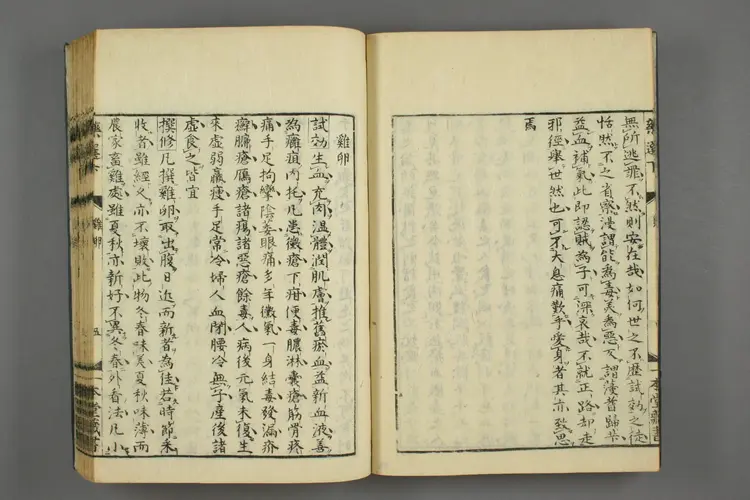 無所逃罪不然則安在哉如何世之不歷試効之徒
恬然不之省察漫謂能為毒美為惡又謂
益血補氣此即認賊為子可深哀哉不就正路却走
邪徑舉世然也可不大息痛歎乎愛身者其亦致思
焉
雞卵
試効生血充肉溫體潤肌膚推舊瘀血益新血液善
為癰疽内托凡患黴瘡下疳便毒膿淋囊瘡筋骨疼
痛手足拘攣陰萎眼痛多年黴氣一身結毒發漏疥
癬臁瘡厲瘡諸瘍諸惡瘡餘毒人病後元氣未復生
來虛弱羸瘦手足常冷婦人血閉腰冷無子産後諸
虛食之皆宜
撰修凡撰雞卵取出腹日近而新者為佳若時節乖
收者雖經久亦不壞敗此物冬春味美夏秋味薄而
農家畜雞處雖夏秋亦新好不異冬春外看法凡小
雞卵
五